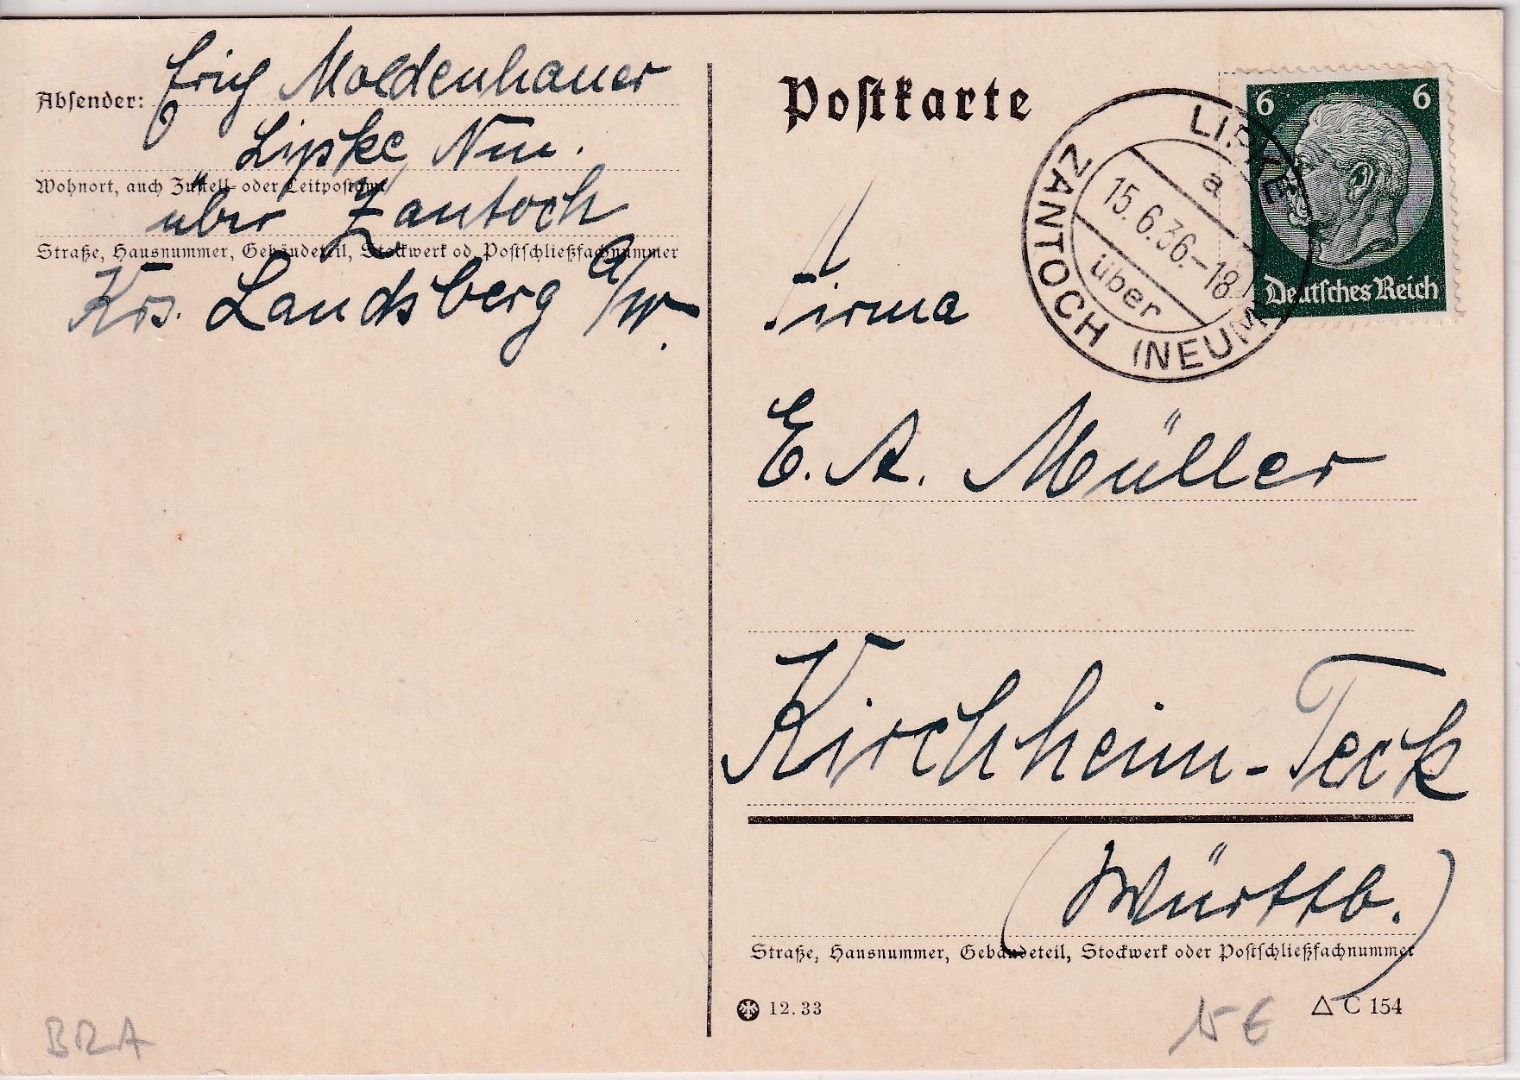 Absender: Erich Moldenhauer
Lipke, Nm.
Wohnort, auch Zustell- oder Leitpostamt
über Zantoch
Straße, Hausnummer, Gebäudeteil, Stockwerk od. Postschließfachnummer
Krs. Landsberg a/W.
Postkarte
LIPKE
a
15.6.36.-18
über
ZANTOCH (NEUM
6 6
Deutsches Reich
Firma
E. A. Müller
Kirchheim-Teck
(Württb.)
Straße, Hausnummer, Gebäudeteil, Stockwerk oder Postschließfachnummer
12. 33
△ C 154
BRA
15 €